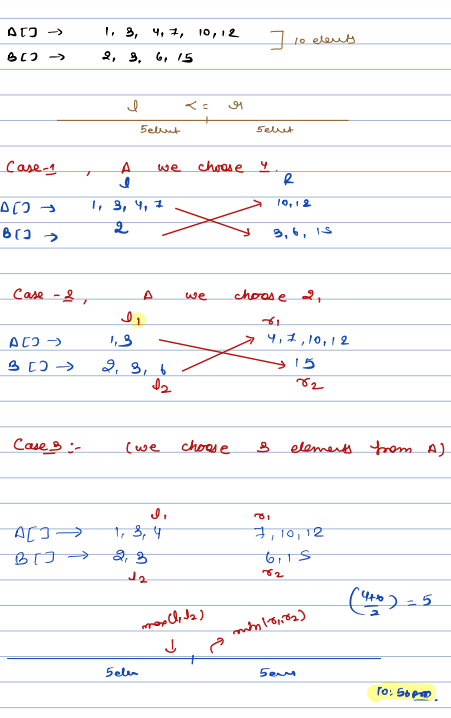 A[] → 1, 3, 4, 7, 10, 12
B[] → 2, 3, 6, 15
] 10 elements
l <= r
5 elmt 5 elmt
Case-1, A we choose 4.
l R
A[] → 1, 3, 4, 7 10, 12
B[] → 2 3, 6, 15
Case -2, A we choose 2,
l1 r1
A[] → 1, 3 4, 7, 10, 12
B[] → 2, 3, 6 15
l2 r2
Case 3 :- (we choose 3 elements from A)
l1 r1
A[] → 1, 3, 4 7, 10, 12
B[] → 2, 3 6, 15
l2 r2
(4+6/2) = 5
max(l1, l2) min(r1, r2)
5 elem
10:50pm.